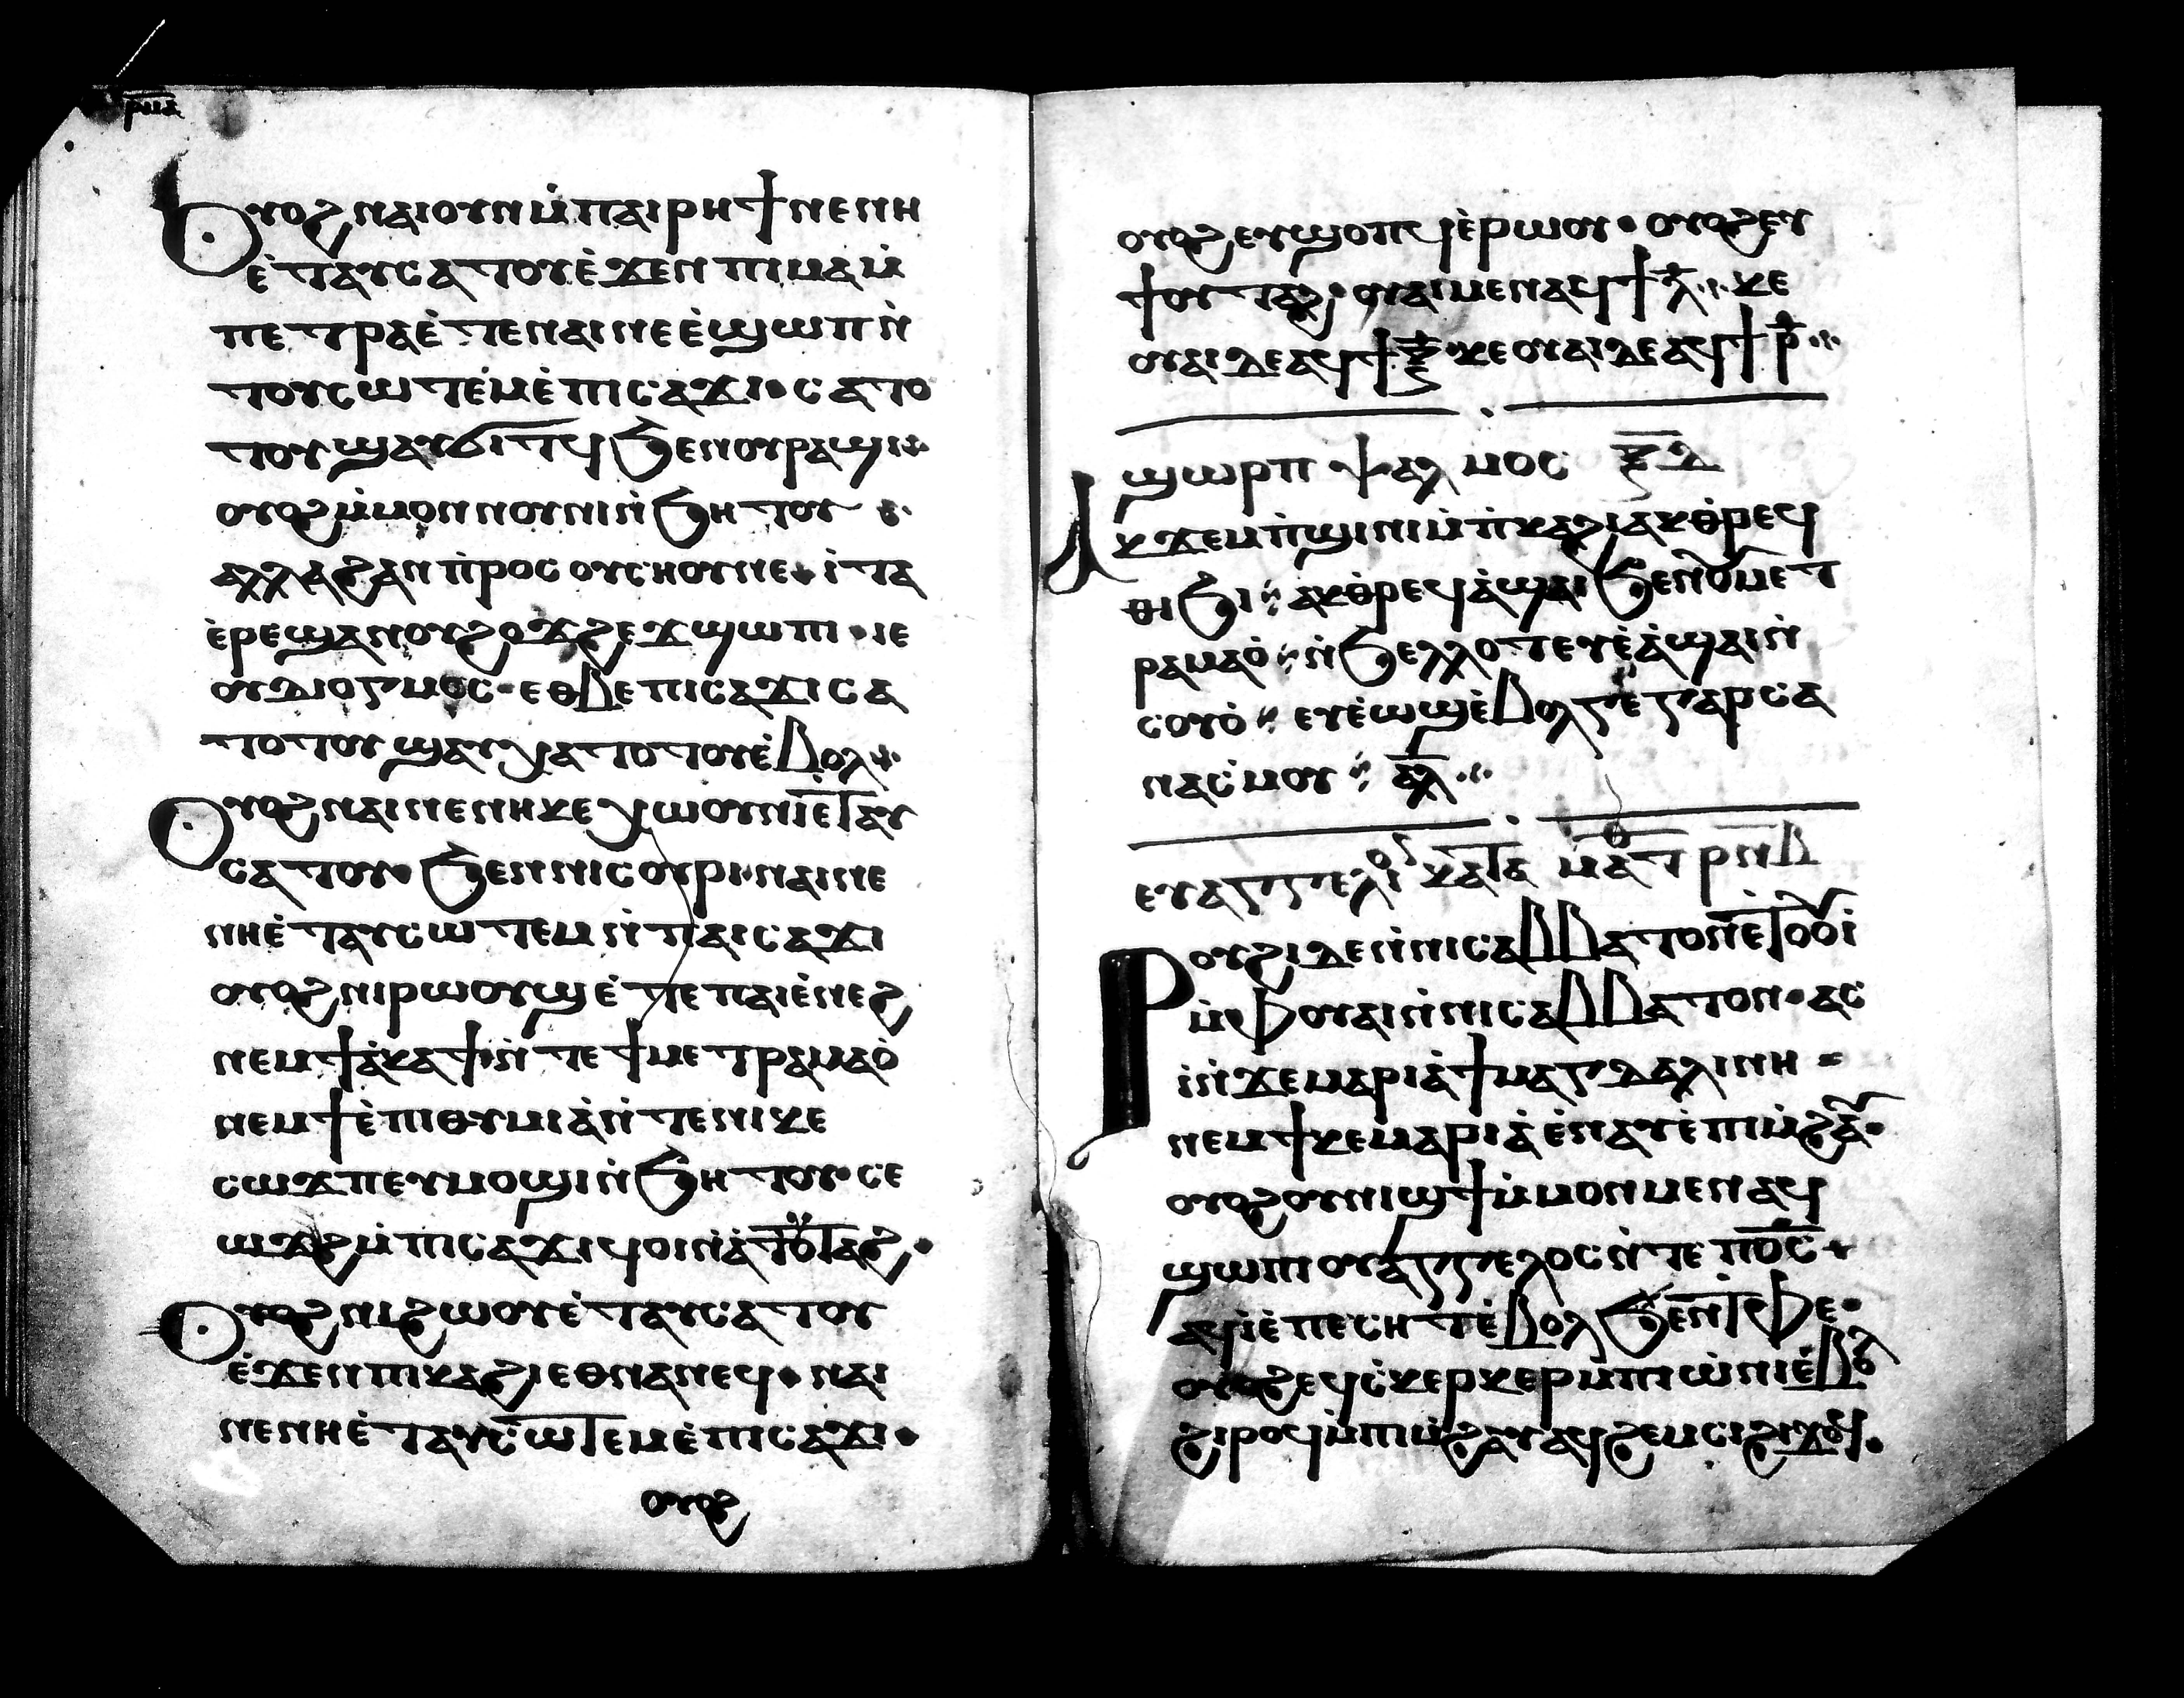 ⲣⲙⲁ
Ⲟⲩⲟϩ ⲛⲁⲓ ⲟⲩⲛ ⲙ̀ⲡⲁⲓⲣⲏϯ ⲛⲉ ⲛⲏ
ⲉ̀ⲧⲁⲩⲥⲁⲧⲟⲩ ⲉ̀ϫⲉⲛ ⲡⲓⲙⲁ ⲙ̀
ⲡⲉⲧⲣⲁ ⲉ̀ⲧⲉ ⲛⲁⲓ ⲛⲉ ⲉ̀ϣⲱⲡ ⲛ̀
ⲧⲟⲩⲥⲱⲧⲉⲙ ⲉ̀ⲡⲓⲥⲁϫⲓ ⲥⲁⲧⲟ
ⲧⲟⲩ ϣⲁⲩϭⲓⲧϥ ϧⲉⲛ ⲟⲩⲣⲁϣⲓ
ⲟⲩⲟϩ ⲙ̀ⲙⲟⲛ ⲛⲟⲩⲛⲓ ⲛ̀ϧⲏⲧⲟⲩ
ⲁⲗⲗⲁ ϩⲁⲛ ⲡ̀ⲣⲟⲥ ⲟⲩⲥⲏⲟⲩ ⲛⲉ ⲓ̀ⲧⲁ
ⲉ̀ⲣⲉϣⲁⲛ ⲟⲩϩⲟϫϩⲉϫ ϣⲱⲡⲓ ⲓⲉ
ⲟⲩⲇⲓⲟⲅⲙⲟⲥ ⲉⲑⲃⲉ ⲡⲓⲥⲁϫⲓ ⲥⲁ
ⲧⲟⲧⲟⲩ ϣⲁⲩⲭⲁⲧⲟⲧⲟⲩ ⲉ̀ⲃⲟⲗ
Ⲟⲩⲟϩ ⲛⲁⲓ ⲛⲉ ⲛⲏ ⲕⲉⲭⲱⲟⲩⲛⲓ ⲉⲧⲁⲩ
ⲥⲁⲧⲟⲩ ϧⲉⲛ ⲛⲓⲥⲟⲩⲣⲓ ⲛⲁⲓ ⲛⲉ
ⲛⲏ ⲉ̀ⲧⲁⲩⲥⲱⲧⲉⲙ ⲛ̀ⲡⲁⲓⲥⲁϫⲓ
ⲟⲩⲟϩ ⲛⲓⲣⲱⲟⲩϣ ⲉ̀ⲧⲉ ⲡⲁⲓⲉ̀ⲛⲉϩ
ⲛⲉⲙ ϯⲁ̀ⲡⲁϯ ⲛ̀ⲧⲉ ϯⲙⲉⲧⲣⲁⲙⲁⲟ̀
ⲛⲉⲙ ϯⲉ̀ⲡⲓⲑⲩⲙⲓⲁ̀ ⲛ̀ⲧⲉ ⲛⲓⲕⲉ
ⲥⲱϫⲡ ⲉⲩⲙⲟϣⲓ ⲛ̀ϧⲏⲧⲟⲩ ⲥⲉ
ⲱϫϩ ⲙ̀ⲡⲓⲥⲁϫⲓ ϥⲟⲓ ⲛ̀ⲁ̀ⲧⲟⲩⲧⲁϩ
Ⲟⲩⲟϩ ⲛⲓϩⲱⲟⲩ ⲉ̀ⲧⲁⲩⲥⲁⲧⲟⲩ
ⲉ̀ϫⲉⲛ ⲡⲓⲕⲁϩⲓ ⲉⲑⲛⲁⲛⲉϥ ⲛⲁⲓ
ⲛⲉ ⲛⲏ ⲉ̀ⲧⲁⲩⲥⲱⲧⲉⲙ ⲉ̀ⲡⲓⲥⲁϫⲓ
ⲟⲩⲟϩ
ⲟⲩⲟϩ ⲉⲩϣⲟⲡϥ ⲉ̀ⲣⲱⲟⲩ ⲟⲩⲟϩ ⲉⲩ
ϯⲟⲩⲧⲁϩ ⲟⲩⲁⲓ ⲙⲉⲛ ⲁϥϯ ⲗ̅ ⲕⲉ
ⲟⲩⲁⲓ ⲇⲉ ⲁϥϯ ⲝ̅ ⲕⲉⲟⲩⲁⲓ ⲇⲉ ⲁϥϯ ⲣ̅
ϣⲱⲣⲡ ⲯⲁⲗⲙⲟⲥ ⲝ̅ⲇ̅
Ⲁⲕϫⲉⲙⲡ̀ϣⲓⲛⲓ ⲙ̀ⲡ̀ⲕⲁϩⲓ ⲁⲕⲑ̀ⲣⲉϥ
ⲑⲓϧⲓ ⲁⲕⲑ̀ⲣⲉϥⲁ̀ϣⲁⲓ ϧⲉⲛ ⲟⲩⲙⲉⲧ
ⲣⲁⲙⲁⲟ̀ ⲛ̀ϧⲉⲗⲗⲟⲧ ⲉⲩⲉ̀ⲁ̀ϣⲁⲓ ⲛ̀
ⲥⲟⲩⲟ̀ ⲉⲩⲉ̀ⲱϣ ⲉ̀ⲃⲟⲗ ⲅⲉ ⲅⲁⲣ ⲥⲁ
ⲛⲁⲥ̀ⲙⲟⲩ ⲁⲗ̅
ⲉⲩⲁⲅⲅⲉⲗⲓⲟⲥ ⲕⲁⲧⲁ ⲙⲁⲧⲑ ⲣⲛⲃ
Ⲣⲟⲩϩⲓ ⲇⲉ ⲛ̀ⲛⲓⲥⲁⲃⲃⲁⲧⲟⲛ ⲉⲧⲟⲟⲩⲓ̀
ⲙ̀ⲫⲟⲩⲁⲓ ⲛ̀ⲛⲓⲥⲁⲃⲃⲁⲧⲟⲛ ⲁⲥ
ⲓ̀ ⲛ̀ϫⲉ ⲙⲁⲣⲓⲁ̀ ϯⲙⲁⲅⲇⲁⲗⲓⲛⲏ
ⲛⲉⲙ ϯⲕⲉⲙⲁⲣⲓⲁ̀ ⲉ̀ⲛⲁⲩ ⲉ̀ⲡⲓⲙ̀ϩⲁⲩ
ⲟⲩⲟϩ ⲟⲩⲛⲓϣϯ ⲙ̀ⲙⲟⲛⲙⲉⲛ ⲁϥ
ϣⲱⲡⲓ ⲟⲩⲁⲅⲅⲉⲗⲟⲥ ⲛ̀ⲧⲉ ⲡⲟ̅ⲥ̅
ⲁϥⲓ̀ ⲉ̀ⲡⲉⲥⲏⲧ ⲉ̀ⲃⲟⲗ ϧⲉⲛ ⲧ̀ⲫⲉ
ⲟⲩⲟϩ ⲉϥⲥ̀ⲕⲉⲣⲕⲉⲣ ⲙ̀ⲡⲓⲱ̀ⲛⲓ ⲉ̀ⲃⲟⲗ
ϩⲓⲣⲟϥ ⲙ̀ⲡⲓⲙ̀ϩⲁⲩ ⲁϥϩⲉⲙⲥⲓ ϩⲓϫⲱϥ